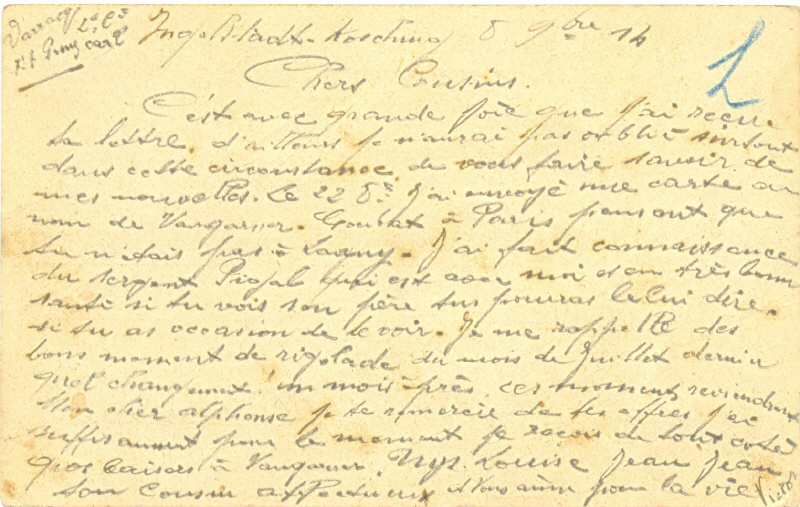 Ingolstadt-Kosching 8 9bre 14
Chers Cousins.
C'est avec grande joie que j'ai reçu
ta lettre, d'ailleurs je n'aurai pas oublié surtout
dans cette circonstance de vous faire savoir de
mes nouvelles. Le 22 j'ai envoyé une carte au
nom de Goubat à Paris pensant que
tu n'étais pas à Lagny. J'ai fait connaissance
du sergent qui est avec moi et en très bonne
santé si tu vois son père tu pouras le lui dire.
si tu as occasion de le voir. Je me rappelle des
bons moment de rigolade du mois de Juillet dernier
quel changement un mois après ces moments reviendront
Mon cher alphonse je te remercie de tes offres j'ai
suffisamment pour le moment je reçois de tout coté
gros baisers à Louise Jean Jean
ton Cousin affectueux et vous aime pour la vie